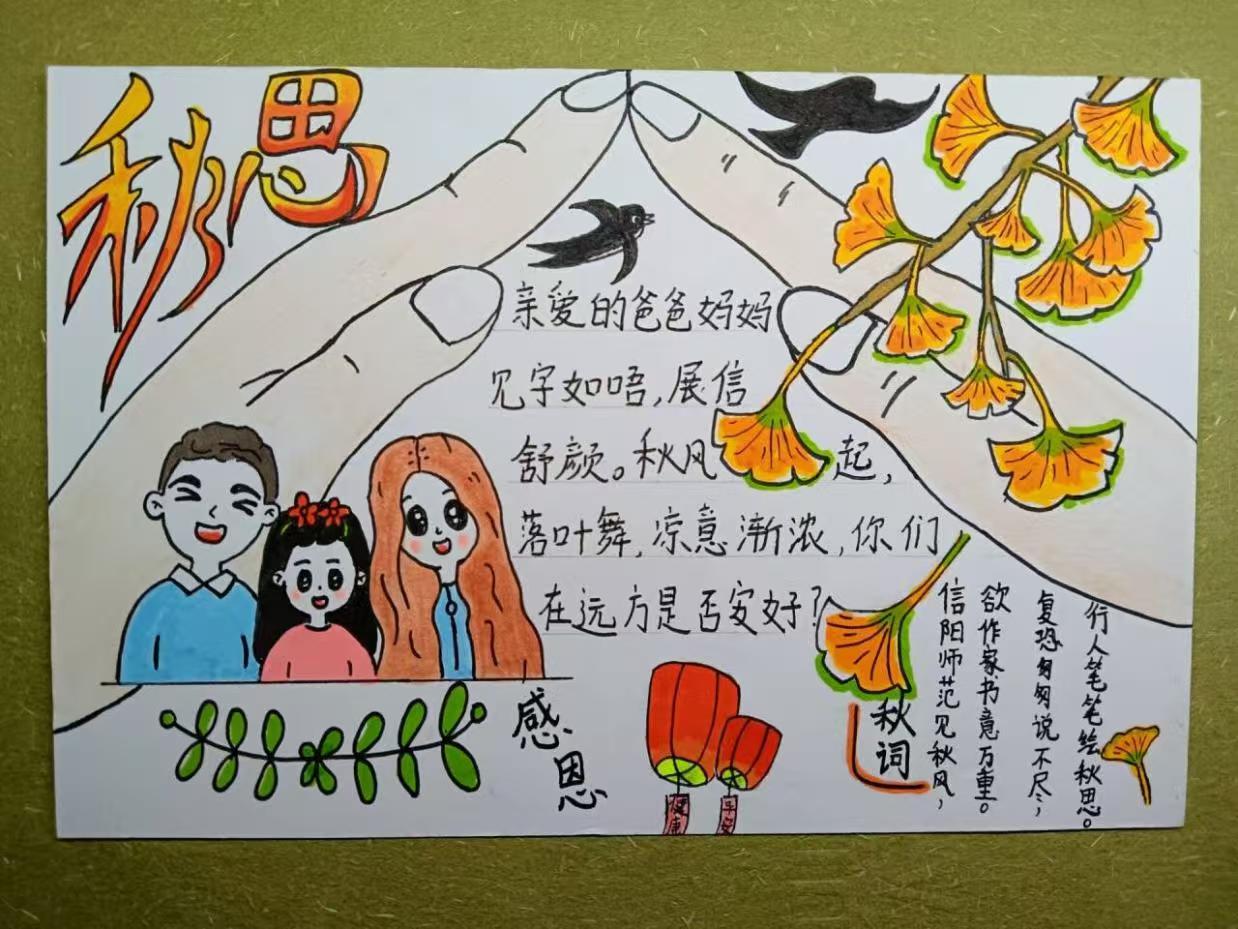 秋思
亲爱的爸爸妈妈
见字如唔,展信
舒颜。秋风起,
落叶舞,凉意渐浓,你们
在远方是否安好?
感恩
健康
平安
秋词
信阳师范见秋风,
欲作家书意万重。
复恐匆匆说不尽,
行人笔笔绘秋思。